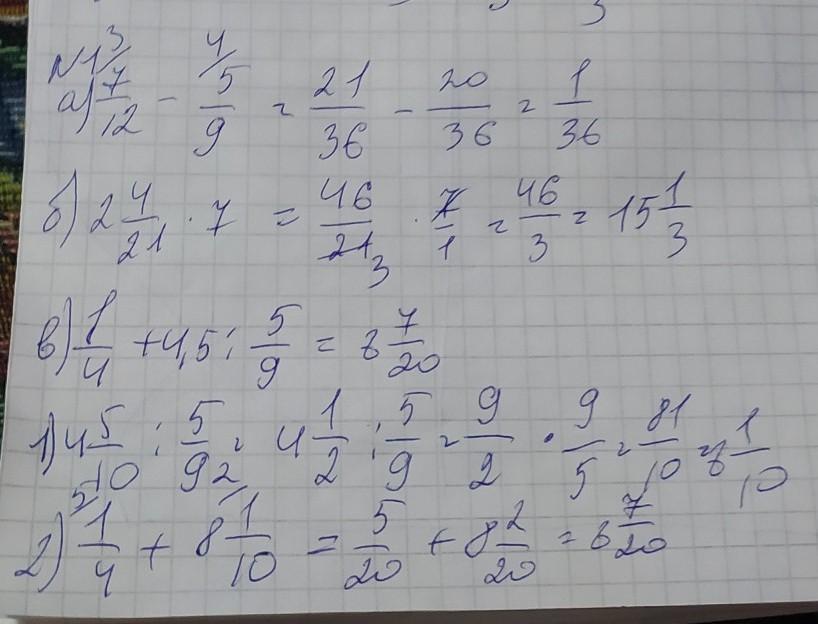 №1
а) 7/12 - 5/9 = 21/36 - 20/36 = 1/36
б) 2 4/21 · 7 = 46/21 · 7/1 = 46/3 = 15 1/3
в) 1/4 + 4,5 : 5/9 = 8 7/20
1) 4 5/10 : 5/9 = 4 1/2 : 5/9 = 9/2 · 9/5 = 81/10 = 8 1/10
2) 1/4 + 8 1/10 = 5/20 + 8 2/20 = 8 7/20